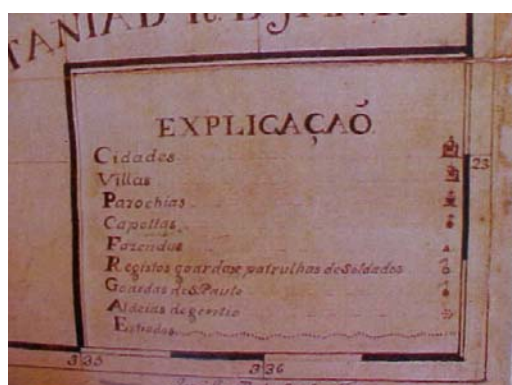 EXPLICAÇAÕ
Cidades
Villas
Parochias
Capellas
Fazendas
Registos goardas e patrulhas de Soldados
Goardas de S. Paulo
Aldeias de gentio
Estradas
23
335
336